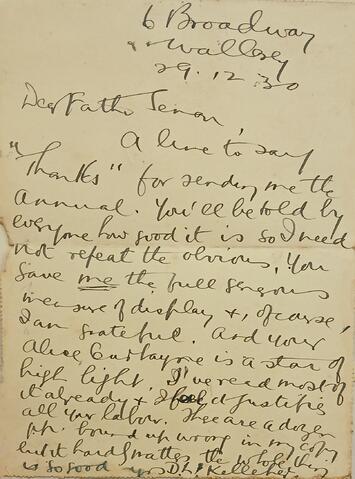 6 Broadway
Wallasey
29.12.30
Dear Father Senan
A line to say
"Thanks" for sending me the
Annual. You'll be told by
everyone how good it is so I need
not repeat the obvious. You
gave me the full generous
measure of display &, of course,
I am grateful. And your
Alice Curtayne is a star of
high light. I've read most of
it already & I feel it justifies
all your labour. There are a dozen
pp. bound up wrong in my copy
but it hardly matters the whole thing
is so good yrs D.L. Kelleher.